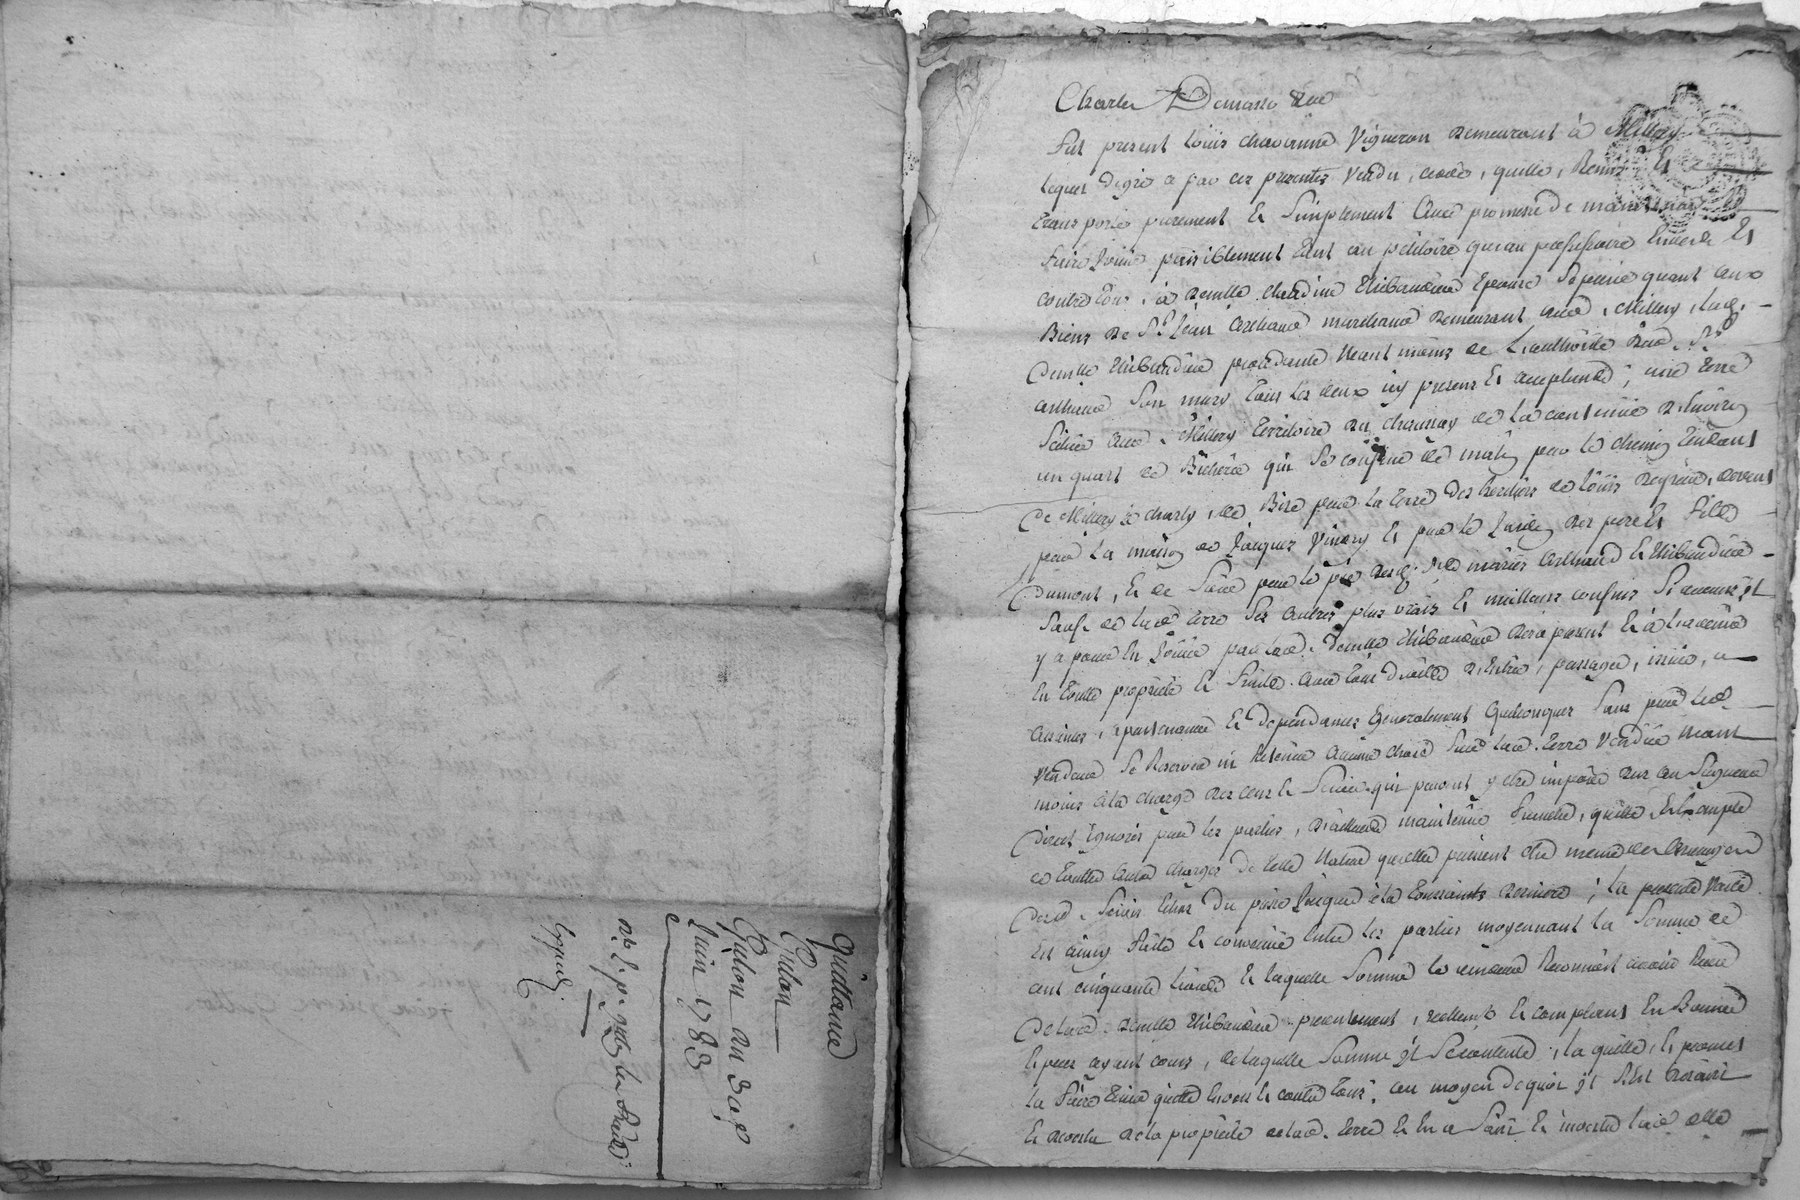 Quittance
Gulon
Gulon du 30e
Juin 1783
Charles
Fut present Loüis chavanne Vigneron demeurant à Millery
lequel de gré a par ces presentes Vendu, cedé, quitté, Remis Et
transporté purement Et Simplement avec promesse de maintenir Et
faire Joüir paisiblement tant au petitoire qu'au possessoire Envers Et
contre tous, à demlle. claudine thibaudier Epouse separée quant aux
Biens de Sr. Jean arthaud marchand demeurant aud. Millery, lad.
demlle thibaudier procedante neant moins de L'authorité dud. Sr.
arthaud son mary tous les deux icy presens Et acceptants; une terre
Scituée aud. Millery territoire du chaunay de la contenüe d'Environ
un quart de Bicherée qui se confine de matin par le chemin tendant
de Millery à charly, de Bize par la terre des heritiers de Loüis
par la maison de Jacques Et par le Jardin des pere Et fille
Dumont, Et de Soir par le pré desd. mariés arthaud Et thibaudier
Sauf de lad. terre ses autres plus vrais Et meilleurs confins Si aucuns
y a pour En Joüir par lad. demlle thibaudier des à present Et à l'avenir
En toutte proprieté Et fruits avec tous droits d'Entrée, passages, issüe,
aisances, apartenances Et dependances Generalement quelconques sans par led.
Vendeur se Reserver ni Retenir aucune chose Sur lad. terre Vendüe neant
moins à la charge des cens Et Servis qui peuvent y être imposés dus au Seigneur
direct ignorés par les parties, d'ailleurs maintenüe franche, quitte, Et Exempte
de touttes autres charges de telle nature qu'elles puissent être même des arrerages
desd. Servis Echus du passé Jusques à la toussaints derniere; la presente Vente
Est ainsy faite Et convenüe Entre les parties moyennant la Somme de
cent cinquante livres Et laquelle Somme le vendeur Reconnoit avoir Reçu
de lad. demlle thibaudier presentement, reellement Et comptant En Bonnes
Especes ayant cours, de laquelle Somme il se contente, la quitte, Et promet
la faire tenir quitte Envers Et contre tous, au moyen de quoi il s'Est
Et de la proprieté de lad. terre Et En a Saisi Et investu lad. dlle